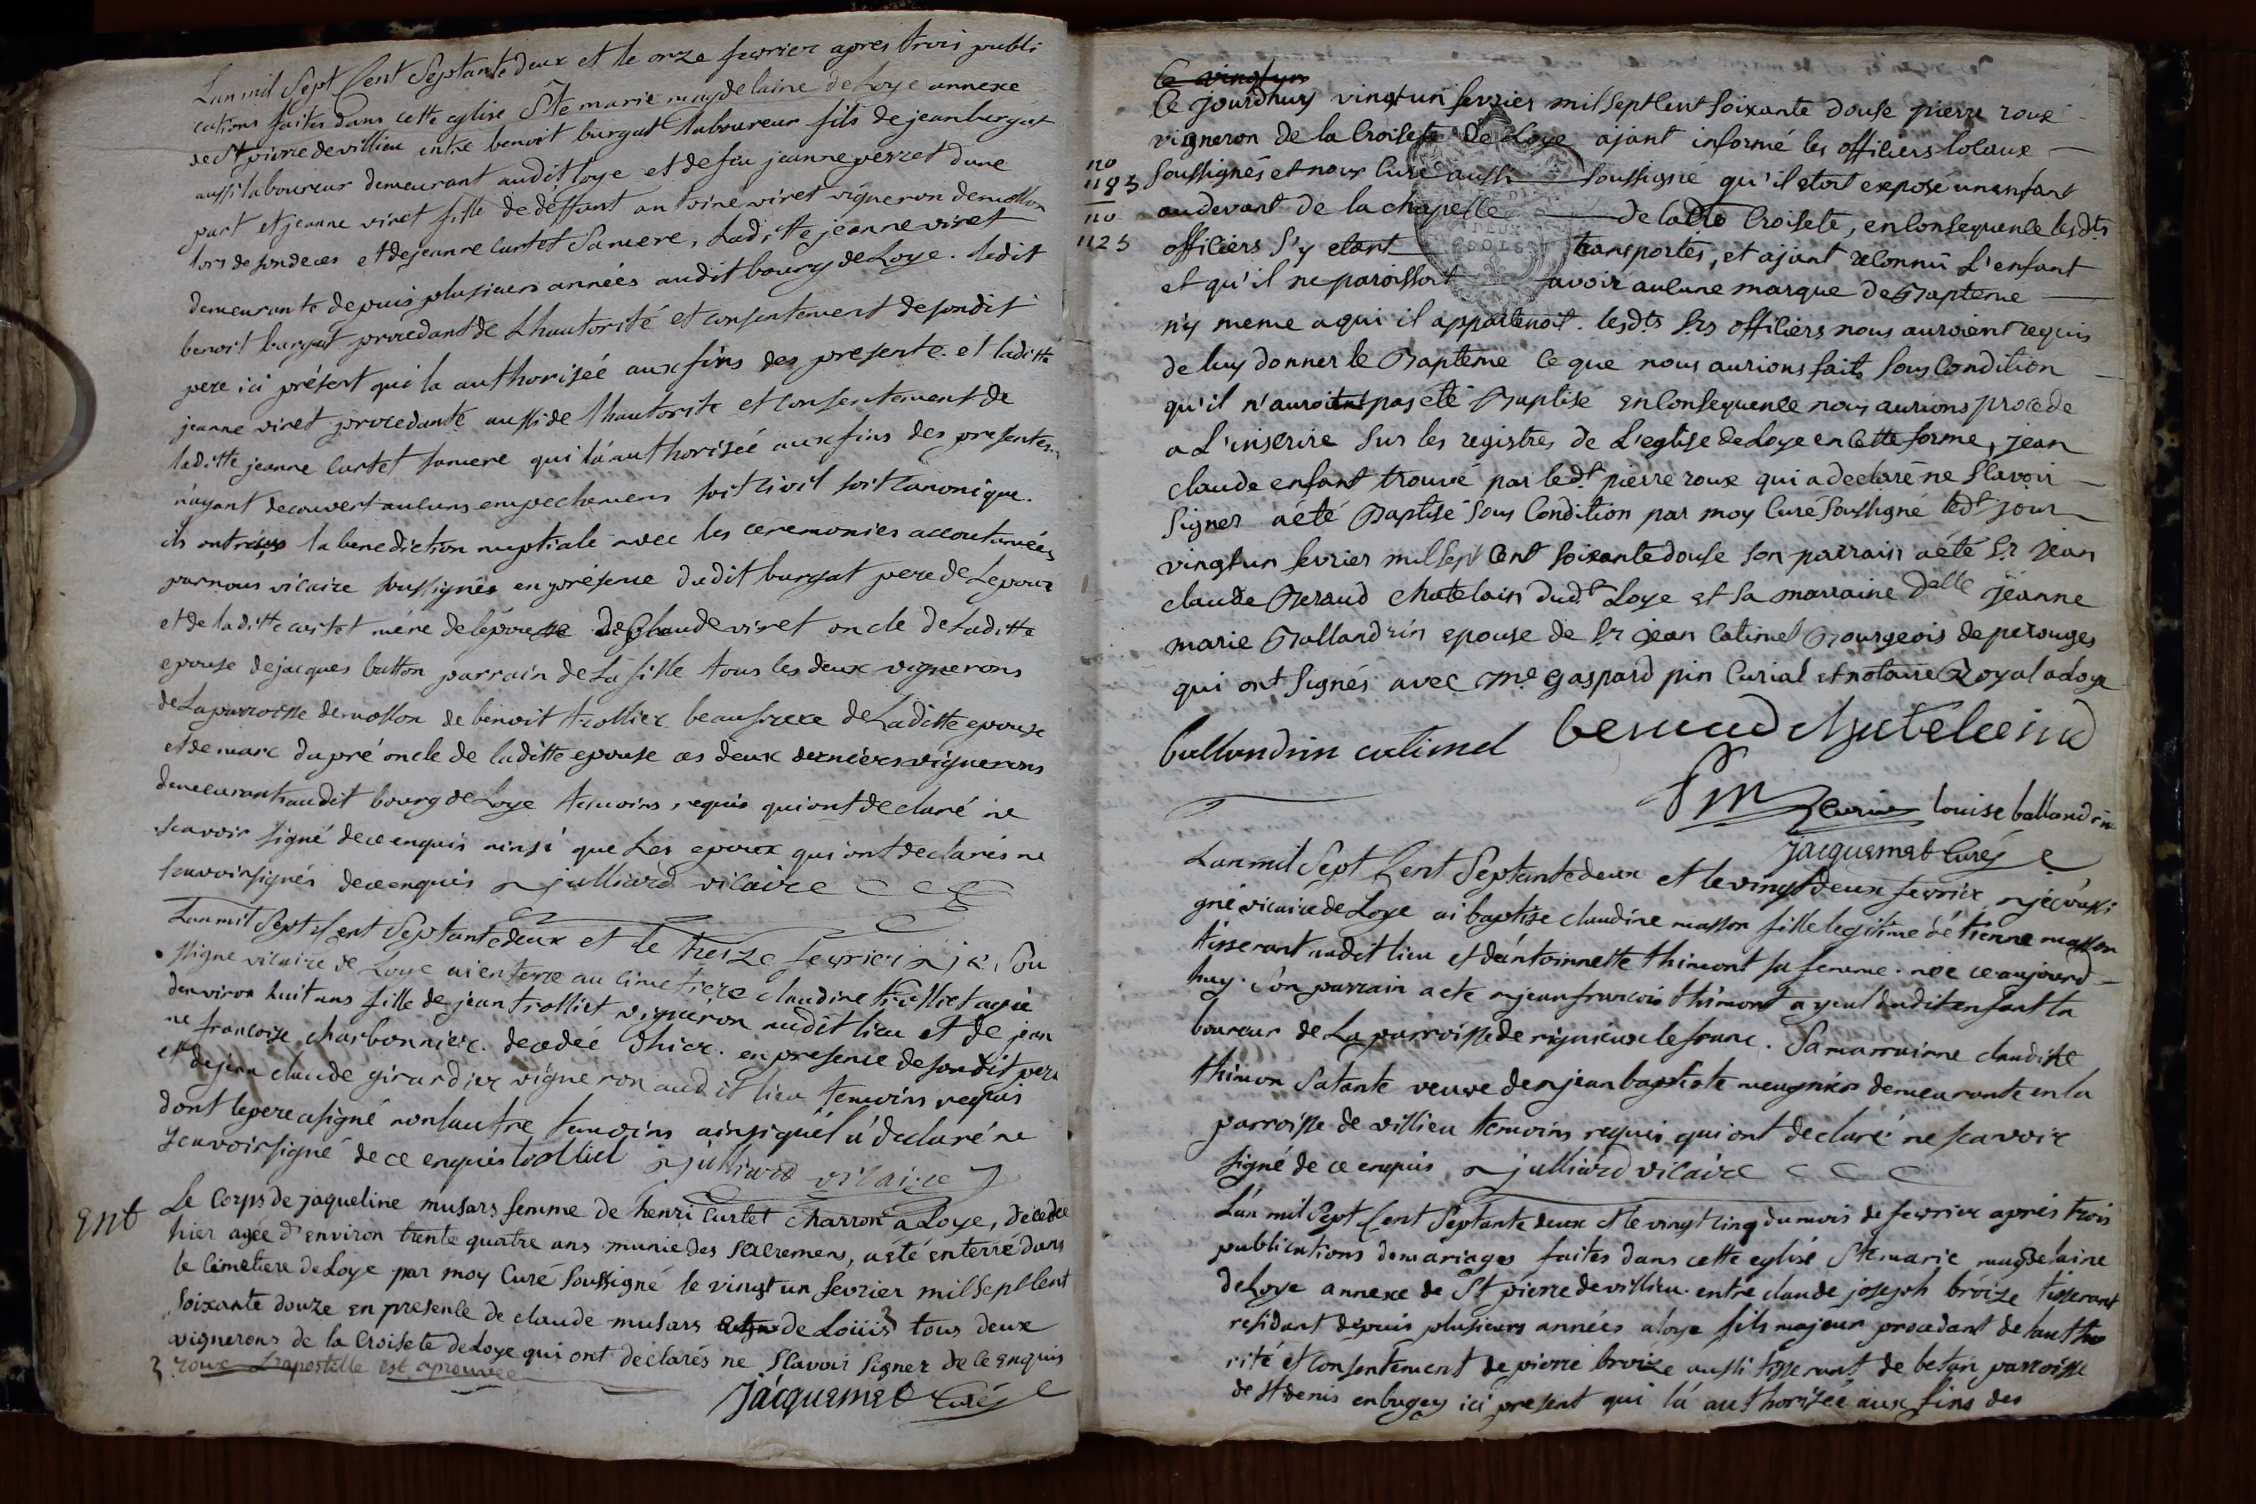 Lan mil Sept Cent Septante deux et le onze fevrier apres trois publi
cations faites dans cette eglise Ste marie magdelaine de Loye annexe
de St pierre de villieu entre benoit burgat laboureur fils de jean burgat
aussi laboureur demeurant audit loye et de feu jeanne perret dune
part et jeanne viret fille de deffunt antoine viret vigneron de mollon
lors de son deces et de jeanne curtet sa mere, Ladite jeanne viret
demeurante depuis plusieurs années audit bourg de Loye. ledit
benoit burgat procedant de Lhautorité et consentement de sondit
pere ici présent qui la authorisée aux fins des presente. et laditte
jeanne viret procedante aussi de l'hautorite et consentement de
laditte jeanne Curtet sa mere qui la authorisée aux fins des presentes
n'ayant decouvert aucuns empechemens soit civil soit canonique.
ils ont réçus la benediction nuptiale avec les ceremonies accoutumées
par nous vicaire soussignés en présence dudit burgat pere de Lepoux
et de laditte curtet mére de lépouse de Claude viret oncle de Laditte
epouse de jacques button parrain de La fille tous les deux vignerons
de La parroisse de mollon de benoit trolliet beaufrere de Laditte epouse
et de marc dupré oncle de laditte epouse ces deux derniers vignerons
demeurants audit bourg de Loye temoins requis qui ont declaré ne
scavoir signé de ce enquis ainsi que Les epoux qui ont declarés ne
scavoir signés de ce enquis julliard vicaire
Lan mil Sept Cent Septante deux et le treize fevrier je, sou
ssigne vicaire de Loye ai enterre au cimetiere claudine trolliet agée
denviron huit ans fille de jean trolliet vigneron audit lieu et de jean
ne francoise charbonnier. decedée d'hier. en presence de sondit pere
et de jean claude girardier vigneron audit lieu temoins requis
dont le pere a signé non lautre temoins ainsi quél a declaré ne
scavoir signé de ce enquis trolliet julliard vicaire
Ent
Le Corps de jaqueline musars femme de henri Curtet charron a Loye, decedée
hier agée d'environ trente quatre ans munie des sacremens, a été enterré dans
le cimetiere de Loye par moy Curé soussigné le vingt un fevrier mil sept cent
soixante douze en presence de claude musars de Loüis tous deux
vignerons de la Croisete de Loye qui ont declarés ne sçavoir signer de ce enquis
roux Lapostille est aprouvée
jacquemet Curé
Ce vingt un
Ce jourdhuy vingt un fevrier mil sept cent soixante douse pierre roux
vigneron de la Croisete de Loye ajant informé les officiers locaux
no
1183
no
1125
soussignés et nous Curé aussi soussigné qu'il etoit exposé un enfant
au devant de la chapelle de ladte Croisete, en consequence lesdts
officiers s'y etant transportés, et ajant reconnu L'enfant
et qu'il ne paroissoit avoir aucune marque de Bapteme
n'y meme a qui il appartenoit. lesdts srs officiers nous auroient requis
de luy donner le Bapteme ce que nous aurions fait sous Condition
qu'il n'auroit pas été Baptisé en consequence nous aurions procede
a L'inscrire sur les registres de L'eglise de Loye en cette forme, jean
claude enfant trouvé par ledt pierre roux qui a declaré ne sçavoir
signer a été Baptisé sous Condition par moy Curé soussigné ledt jour
vingt un fevrier mil sept cent soixante douse son parrain a été Sr jean
claude Beraud chatelain dudt Loye et sa marraine Delle jeanne
marie Ballandrin epouse de Sr jean Catimel Bourgeois de perouges
qui ont signés avec Me gaspard pin Curial et notaire Royal a Loye
ballandrin catimel beraud chatelain
Pin curial louise ballandrin
jacquemet Curé
Lan mil Sept Cent Septante deux et le vingt deux fevrier je soussi
gné vicaire de Loye ai baptise claudine masson fille legitime d'étienne masson
tisserant audit lieu et d'antoinnette thimont sa femme. née ce aujourd
huy. Son parrain a eté jean francois thimont ayeul dudit enfant la
boureur de La parroisse de rignieux le franc. Sa marraine claudine
thimon sa tante veuve de jean baptiste meugnier demeurante en la
parroisse de villieu temoins requis qui ont declaré ne scavoir
signé de ce enquis julliard vicaire
L'an mil Sept Cent Septante deux et le vingt cinq du mois de fevrier aprés trois
publications de mariages faites dans cette eglise Ste marie magdelaine
de Loye annexe de St pierre de villieu. entre claude joseph broize tisserant
residant depuis plusieurs années a loye fils majeur procedant de lautho
rité et consentement de pierre broize aussi tisserant de betan parroisse
de St denis en bugey ici present qui l'a authorisée aux fins des